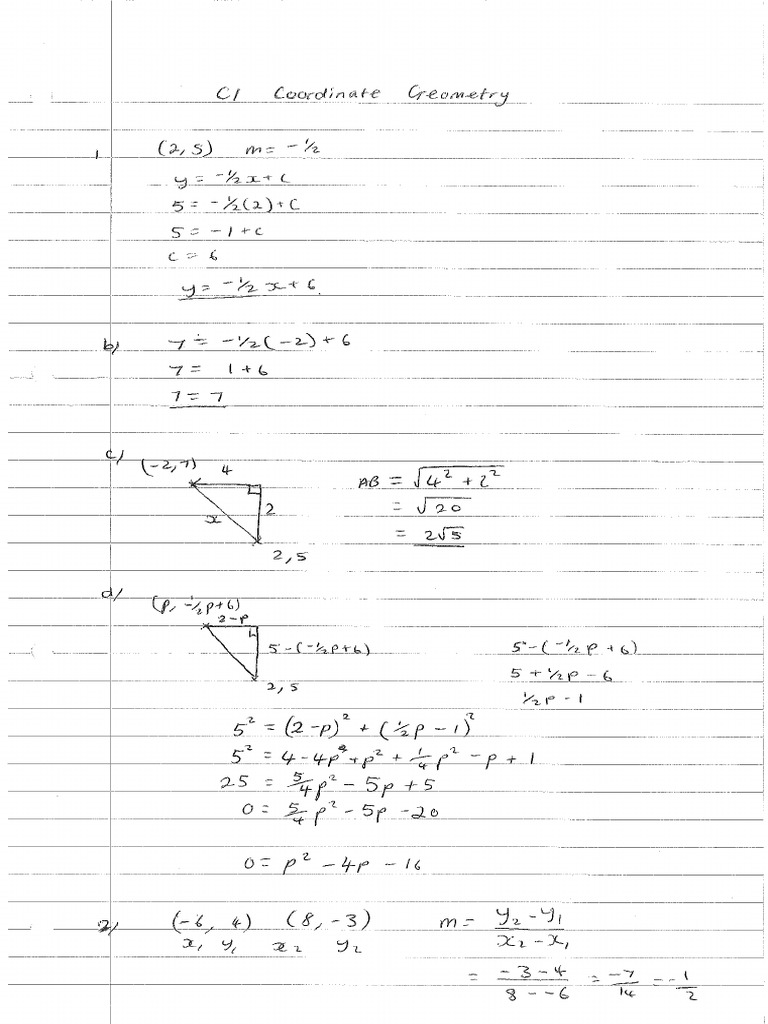 C1 Coordinate Geometry
1 (2, 5) m = -1/2
y = -1/2x + c
5 = -1/2(2) + c
5 = -1 + c
c = 6
y = -1/2 x + 6
b) 7 = -1/2(-2) + 6
7 = 1 + 6
7 = 7
c) (-2, 7) 4
x 2
2, 5
AB = √(4² + 2²)
= √20
= 2√5
d) (p, -1/2p + 6)
2-p
5-(-1/2p+6)
2, 5
5-(-1/2p + 6)
5 + 1/2p - 6
1/2p - 1
5² = (2-p)² + (1/2p - 1)²
5² = 4 - 4p + p² + 1/4p² - p + 1
25 = 5/4p² - 5p + 5
0 = 5/4p² - 5p - 20
0 = p² - 4p - 16
2) (-6, 4) (8, -3) m = (y₂ - y₁)/(x₂ - x₁)
x₁ y₁ x₂ y₂
= (-3 - 4)/(8 - -6) = -7/14 = -1/2